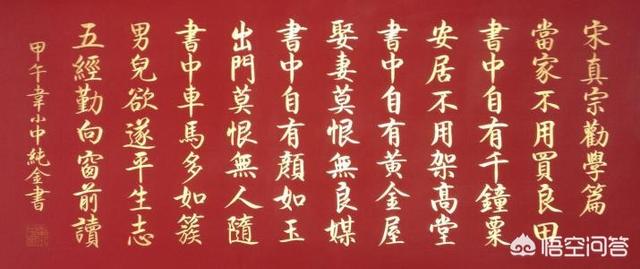 宋真宗勸學篇
當家不用買良田
書中自有千鐘粟
安居不用架高堂
書中自有黃金屋
娶妻莫恨無良媒
書中自有顏如玉
出門莫恨無人隨
書中車馬多如簇
男兒欲遂平生志
五經勤向窗前讀
甲午韋小中純金書
悟空问答